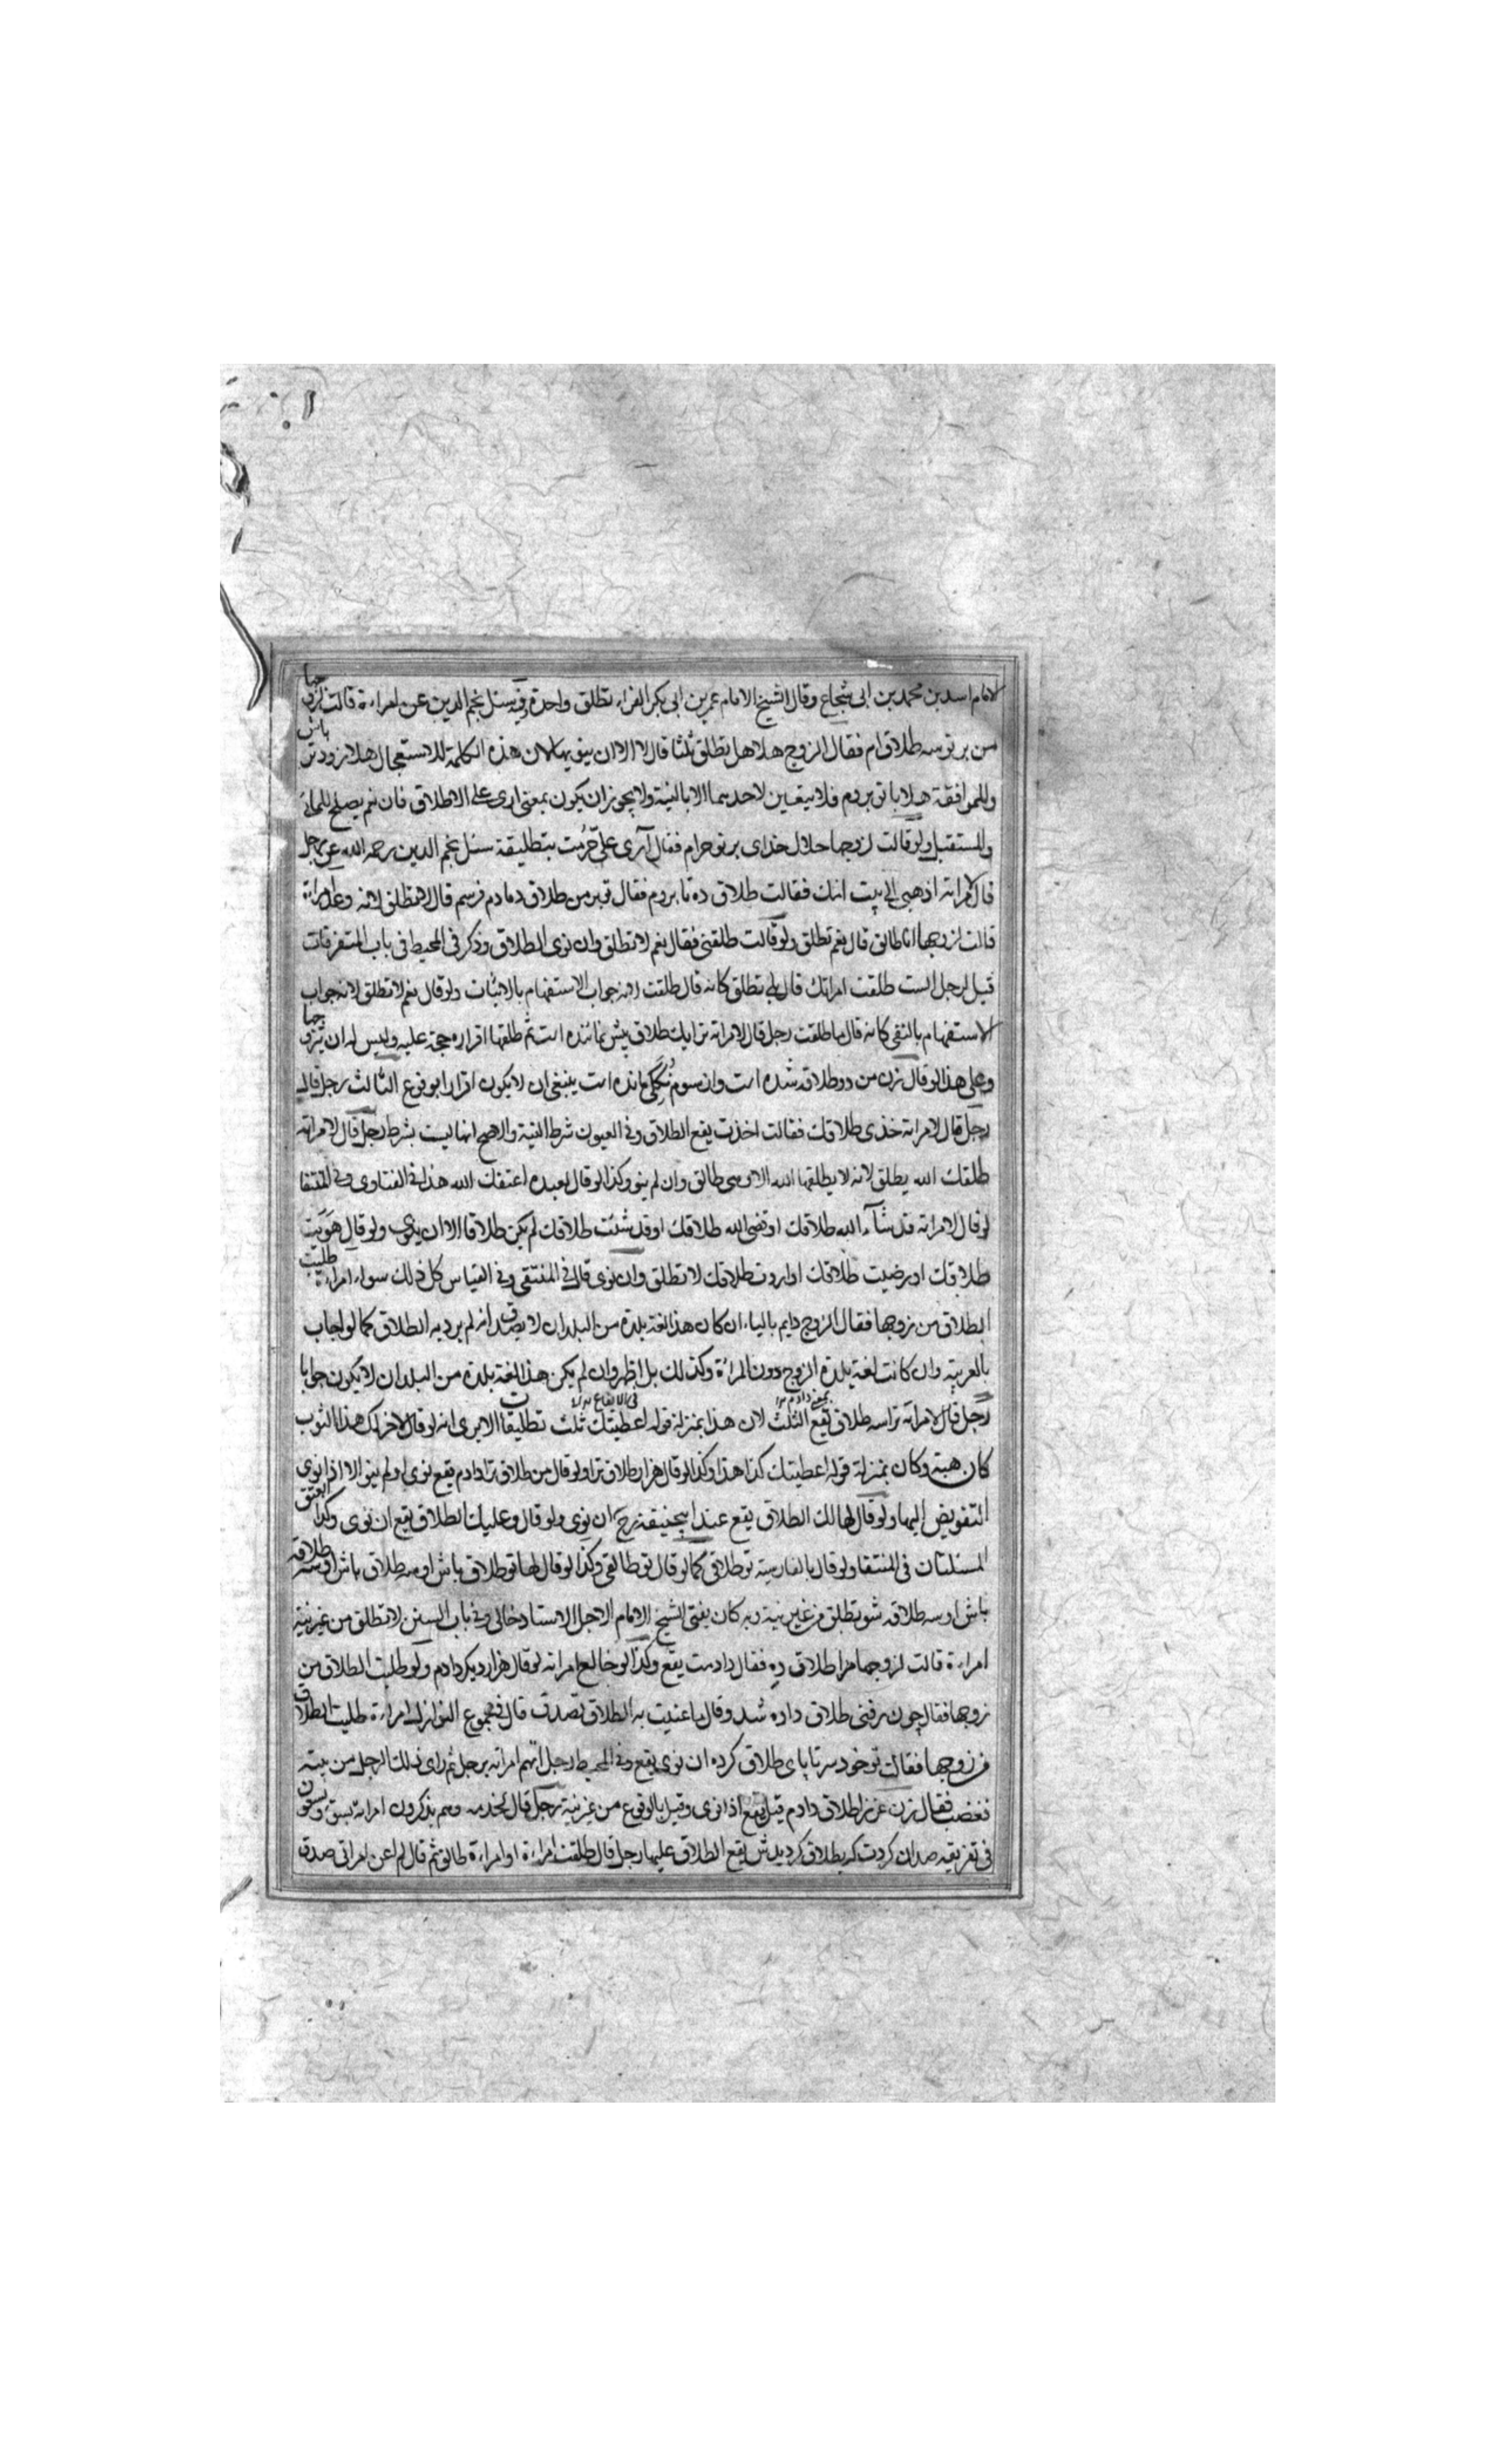 الامام اسد بن محمد بن ابى شجاع وقال الشيخ الامام عمر بن ابى بكر الفراء تطلق واحدة وفى سئل نجم الدين عن امراءة قالت لزوجها
من بر تو سه طلاق ام فقال الزوج هلا هل تطلق ثلثا قال لا الا ان ينوى لان هذه الكلمة للاستعجال هلا زود تر باش
وللموافقة هلا با تو بردم فلا يتعين لاحدهما الا بالنية ولا يجوز ان يكون بمعنى ارى على الاطلاق فان نعم يصلح للماضى
والمستقبل ولو قالت لزوجها حلال خداى بر تو حرام فقال آرى على حرمت بتطليقة سئل نجم الدين رحمه الله عن رجل
قال لامراته اذهبى الى بيت امك فقالت طلاق ده تا بروم فقال تو برو من طلاق دمادم فرستم قال لا تطلق لانه وعد امراءة
قالت لزوجها انا طالق قال نعم تطلق ولو قالت طلقنى فقال نعم لا تطلق وان نوى الطلاق وذكر فى المحيط فى باب المتفرقات
قيل لرجل الست طلقت امراتك قال بلى تطلق كانه قال طلقت لانه جواب الاستفهام بالاثبات ولو قال نعم لا تطلق لانه جواب
الاستفهام بالنفى كانه قال ما طلقت رجل قال لامراته ترا يك طلاق بيش نمانده است ثم طلقها اقراره حجة عليه وليس له ان يتزوجها
وعلى هذا لو قال زن من دو طلاقه شده است وان سوم مانده است ينبغى ان لا يكون اقرارا بوقوع الثالث رجل قال
رجل قال لامراته خذى طلاقك فقالت اخذت يقع الطلاق وفى العيون شرط النية والاصح انها ليست بشرط رجل قال لامراته
طلقك الله يطلق لانه لا يطلقها الله الا وهى طالق وان لم ينو وكذا لو قال لعبده اعتقك الله هذا فى الفتاوى وفى المنتقا
لو قال لامراته قد شآء الله طلاقك او قضى الله طلاقك او قد شئت طلاقك لم يكن طلاقا الا ان ينوى ولو قال هويت
طلاقك او رضيت طلاقك او اردت طلاقك لا تطلق وان نوى قال فى المنتقى وفى القياس كل ذلك سواء امراءة طلبت
الطلاق من زوجها فقال الزوج دايم بالياء ان كان هذا لغة بلدة من البلدان لا يصدق انه لم يرد به الطلاق كما لو اجاب
بالعربية وان كانت لغة بلدة الزوج دون المراءة وكذلك بل اظهر وان لم يكن هذا لغة بلدة من البلدان لا يكون جوابا
رجل قال لامراته ترا سه طلاق يقع الثلث لان هذا بمنزلة قوله اعطيتك ثلث تطليقات الا يرى انه لو قال لاخر لك هذا الثوب
كان هبة وكان بمنزلة قوله اعطيتك كذا هذا وكذا لو قال هزار طلاق ترا ولو قال من طلاق ترا دادم يقع نوى او لم ينو الا اذا نوى
التفويض اليها ولو قال لها لك الطلاق يقع عند ابيحنيفة رح ان نوى ولو قال وعليك الطلاق يقع ان نوى وكذا العتق
المسئلتان فى المنتقا ولو قال بالفارسية تو طلاقى كما لو قال تو طالقى وكذا لو قال لها تو طلاق باش او سه طلاق باش او سه طلاقه
باش او سه طلاقه شو تطلق من غير نية وبه كان يفتى الشيخ الامام الاجل الاستاد خالى وفى باب السين لا تطلق من غير نية
امراءة قالت لزوجها مرا طلاق ده فقال دادمت يقع وكذا لو خالع امراته لو قال هزار ديكر دادم ولو طلبت الطلاق من
زوجها فقال چون رفتى طلاق داده شد وقال ما عنيت به الطلاق تصدق قال فى مجموع النوازل امراءة طلبت الطلاق
من زوجها فقال تو خود سر تا پاى طلاق كرده ان نوى يقع وفى المحيط رجل اتهم امراته برجل ثم راى ذلك الرجل من بيته
فغضب فقال زن غر را طلاق دادم قيل يقع اذا نوى وقيل بالوقوع من غير نية رجل قال
يقع الطلاق عليها رجل قال طلقت امراءة او امراءة طالق ثم قال لم اعن امراتى صدق